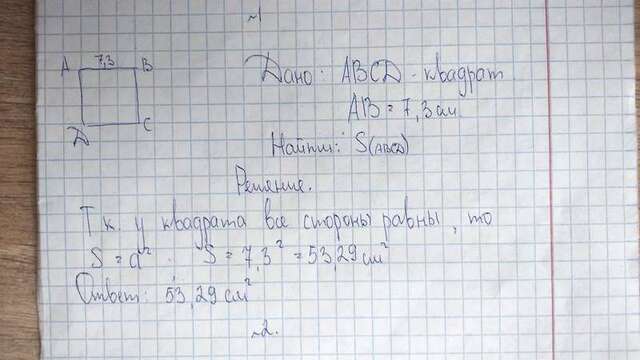 ~1
A
7,3
B
D
C
Дано: ABCD - квадрат
AB = 7,3 см
Найти: S(ABCD)
Решение.
Т.к. у квадрата все стороны равны, то
S = a². S = 7,3² = 53,29 см²
Ответ: 53,29 см²
~2.